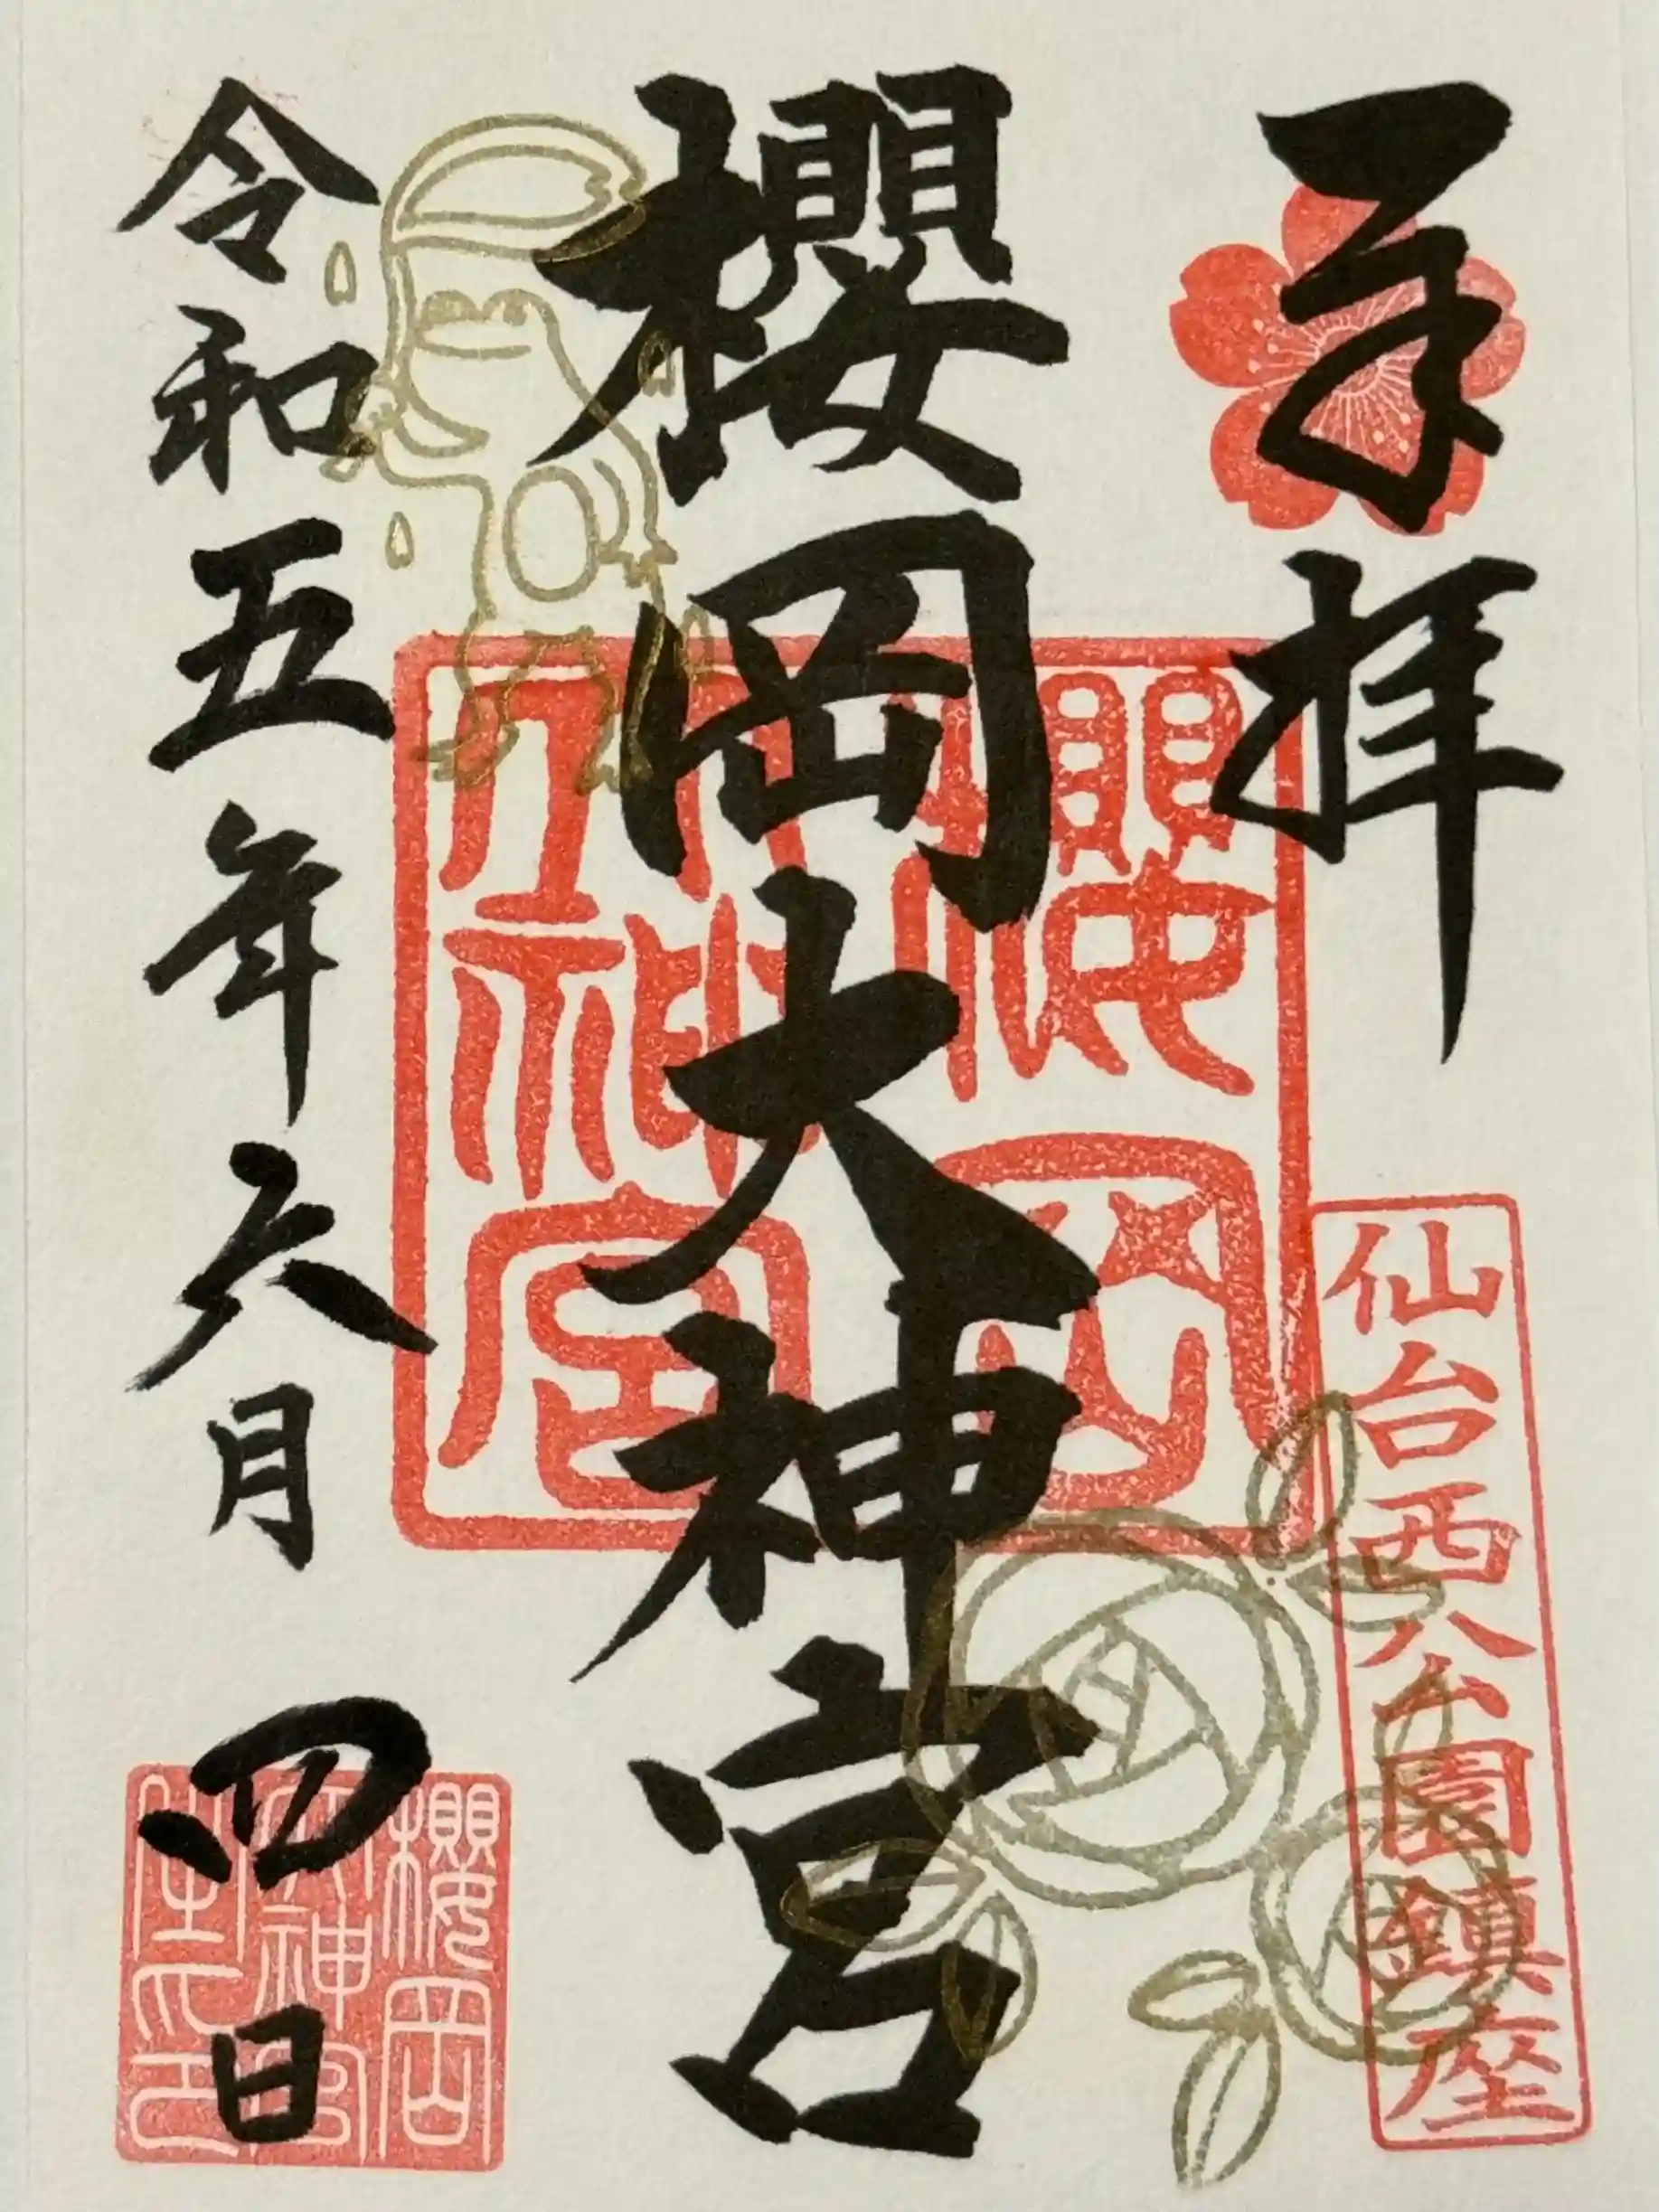 奉拝
仙台西公園鎮座
櫻岡大神宮
櫻岡
大神宮
令和五年六月四日
櫻岡
大神宮
之印